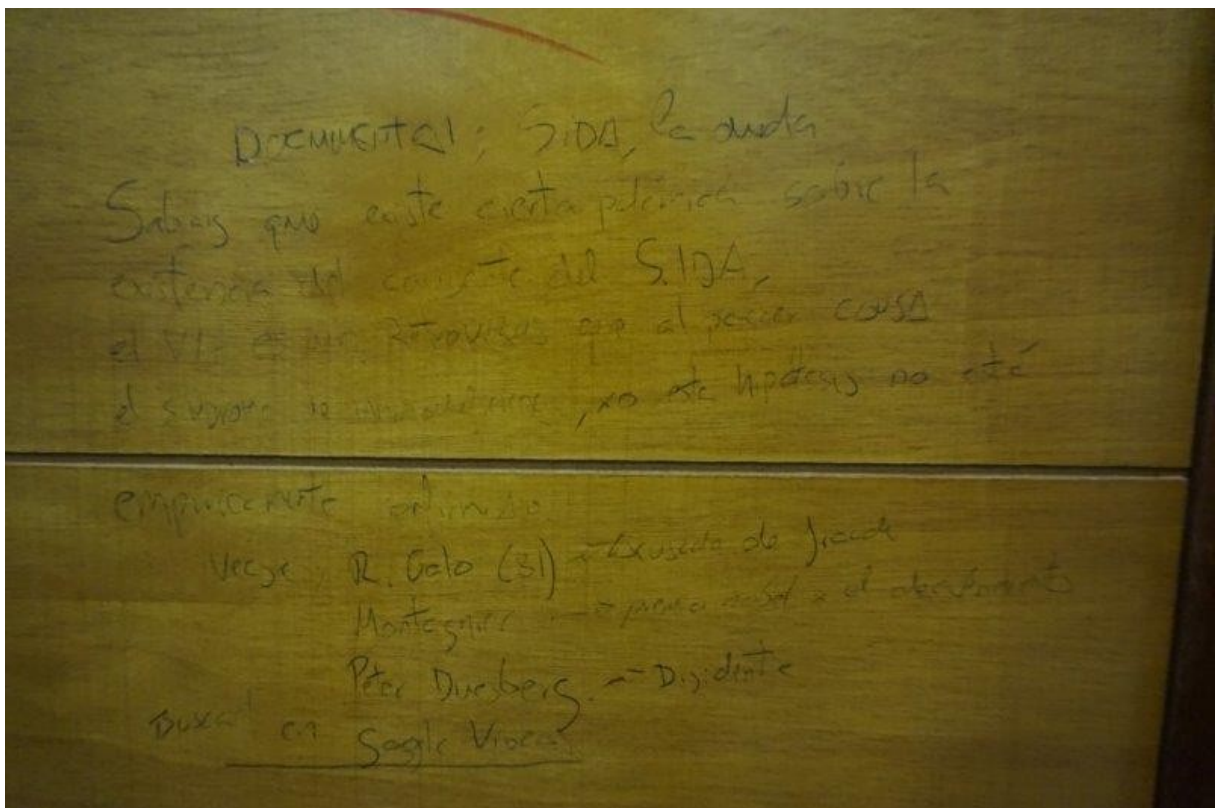 DOCUMENTAl; SIDA, la duda
Sabias que existe cierta polémica sobre la
existencia del del S.IDA,
el VIH es un Retrovirus que al parecer CAUSA
el de , xo esta hipótesis no está
empiricamente
Vease R. Galo (81) → Acusado de fraude
Montagnier → premio nobel x el descubrimiento
Peter Duesberg → Disidente
Buscar en Google Videos